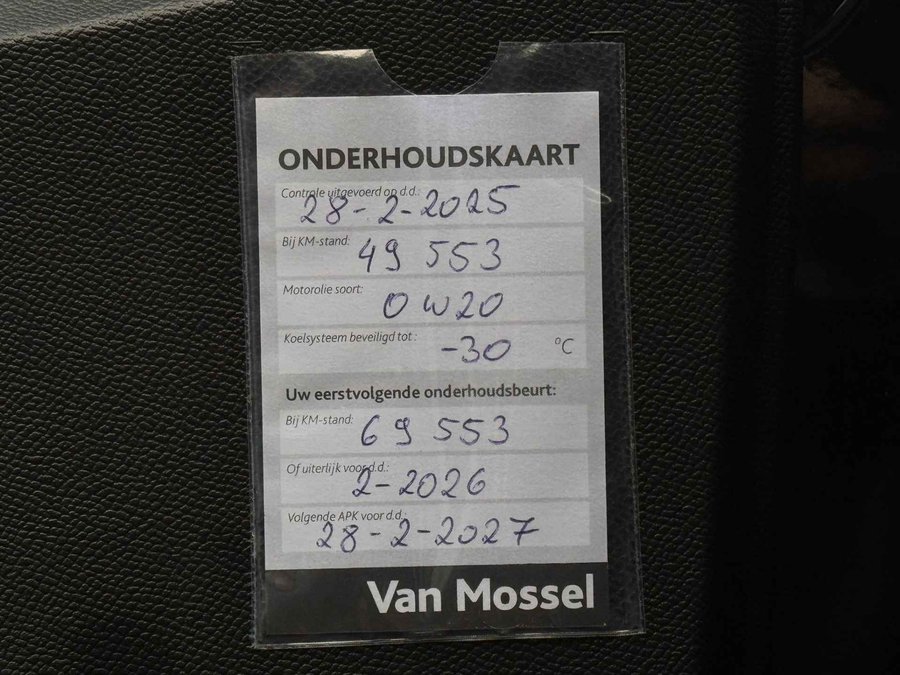 ONDERHOUDSKAART
Controle uitgevoerd op d.d.:
28-2-2025
Bij KM-stand: 49 553
Motorolie soort: 0W20
Koelsysteem beveiligd tot : -30 °C
Uw eerstvolgende onderhoudsbeurt:
Bij KM-stand: 69 553
Of uiterlijk voor d.d.:
2-2026
Volgende APK voor d.d.:
28-2-2027
Van Mossel